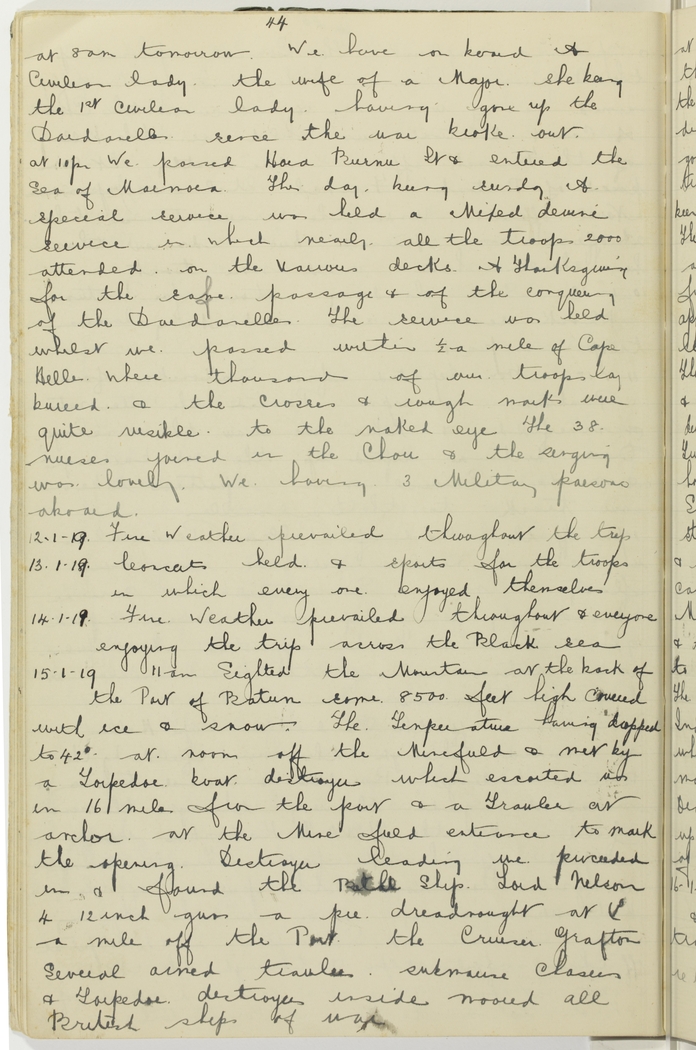 44
at 8am tomorrow. We have on board A
Civilean lady. the wife of a Major. she being
the 1st Civilean lady. having gone up the
Dardanelles sence the war broke out.
at 10pm We passed Hora Burnu Lt & entered the
Sea of Marmora. This day. being sunday A
special service was held a Mixed devine
service in which nearly all the troops 2000
attended. on the Various decks. A Thanksgiving
for the safe passage & of the conquering
of the Dardanelles. The service was held
whilst we. passed within ½ a mile of Cape
Helle. Where thousand of our troops lay
buried. & the Crosses & rough marks were
quite visible. to the naked eye The 38.
nurses joined in the Choir & the singing
was lovely. We having 3 Military parsons
aboard.
12-1-19. Fine Weather prevailed throughout the trip
13.1.19. Concerts held. & sports for the troops
in which every one enjoyed themselves
14.1.19. Fine. Weather prevailed throughout & everyone
enjoying the trip across the Black sea
15-1-19 11am Sighted the Mountain at the back of
the Port of Batum some 8500 feet high Covered
with ice & snow. The Temperature having dropped
to 42° at noon off the Minefield & met by
a Torpedoe boat destroyer which escorted us
in 16 miles from the port & a Trawler at
anchor. at the Mine field entrance to mark
the opening. Destroyer leading we proceeded
in & found the Battle Ship. Lord Nelson
4 12 inch guns a pre. dreadnought at
a mile off the Port. the Cruiser Grafton
Several armed trawlers. submarine Chasers
& Torpedoe. destroyers inside moored all
British ships of war